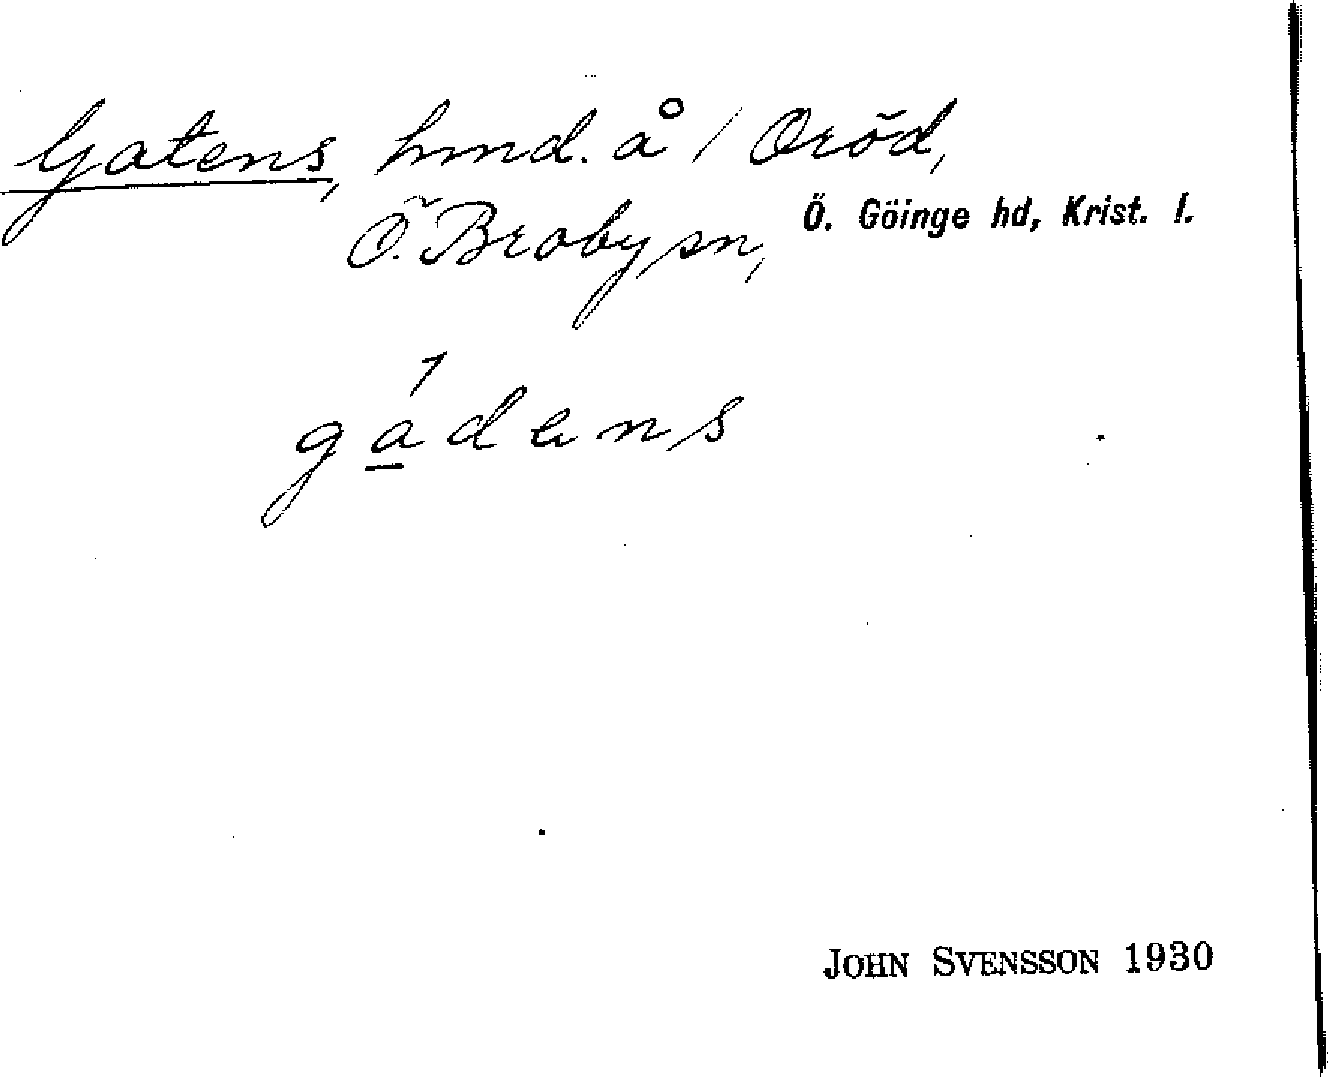 Gatens, hmd. å / Oröd,
Ö. Broby sn, Ö. Göinge hd, Krist. l.
gadens
JOHN SVENSSON 1930